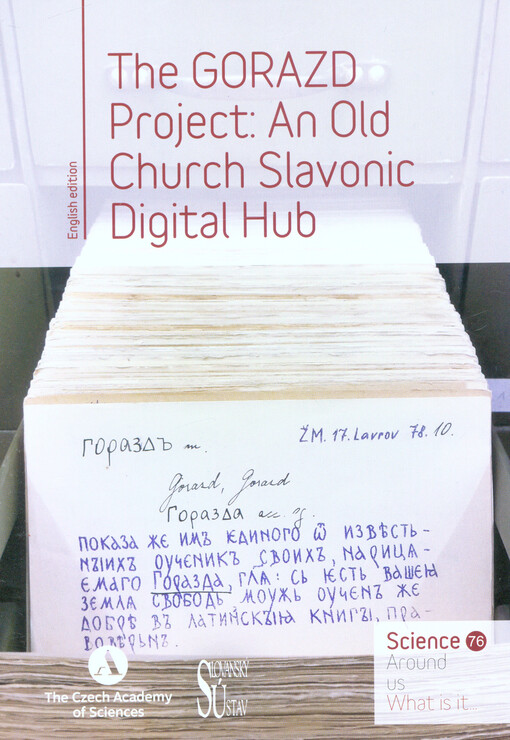 The GORAZD
Project: An Old
Church Slavonic
Digital Hub
English edition
гораздъ m.
ŽM. 17. Lavrov 78. 10.
Gorazd, Gorazd
Горазда acc. sg.
показа же имъ єдиного ѿ извѣсть-
нъіихъ оученикъ своихъ, нарица-
ємаго Горазда, гл҃а: сь ѥсть вашеꙗ
землѧ свободь моужь оученъ же
добрѣ въ латиньскъіꙗ книгъі, пра-
вовѣрьнъ.
Science 76
Around
us
What is it...
The Czech Academy
of Sciences
SLOVANSKÝ
ÚSTAV